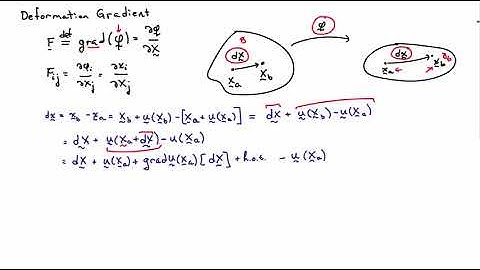 Deformation Gradient
F ≝ grad(φ) = ∂φ/∂X
F_ij = ∂φ_i/∂X_j = ∂x_i/∂X_j
B
dX
X_a X_b
φ
dx
x_a x_b
dx = x_b - x_a = X_b + u(X_b) - [X_a + u(X_a)] = dX + u(X_b) - u(X_a)
= dX + u(X_a + dX) - u(X_a)
= dX + u(X_a) + grad u(X_a)[dX] + h.o.t. - u(X_a)